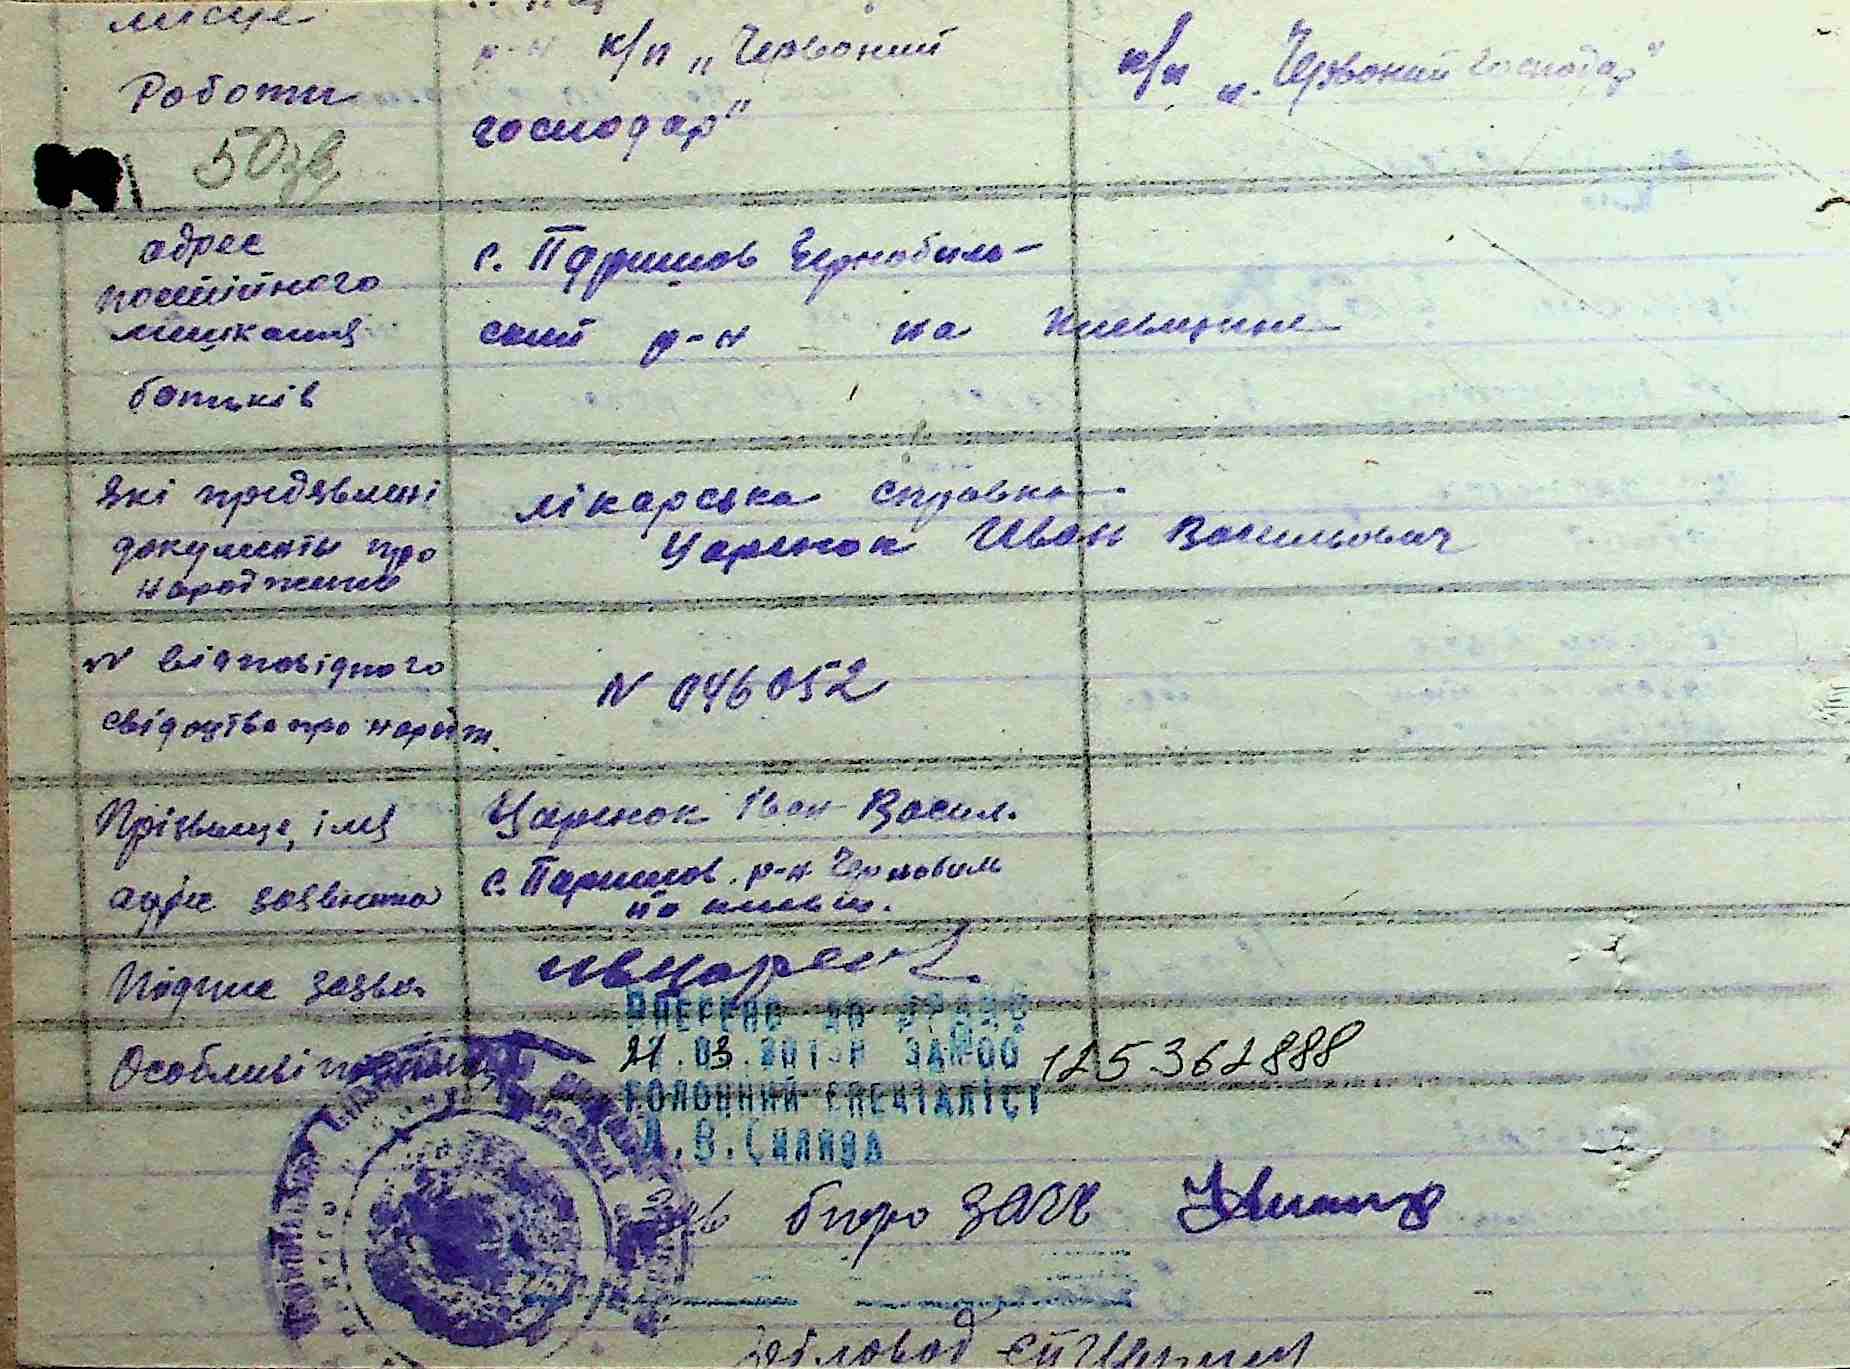 місце
Роботи
р-н к/п „Червоний
господар"
к/п „Червоний господар"
50зв
адрес
постійного
мешкання
батьків
с. Паришов Чернобиль-
ский р-н на Киевщине
Які предявлені
документы про
народження
лікарська справка
Царенок Иван Васильович
N відповідного
свідоцтва про народж.
N 046052
Прізвище, імя
адрес заявника
Царенок Іван Васил.
с. Паришов р-н Чернобиль
на киевщ.
Підпис заявн.
Особливі
ВПЕРЕНО
21.03.2013Р ЗА№00 125362888
ГОЛОВНИЙ СПЕЦІАЛІСТ
Зав бюро ЗАГС
Діловод